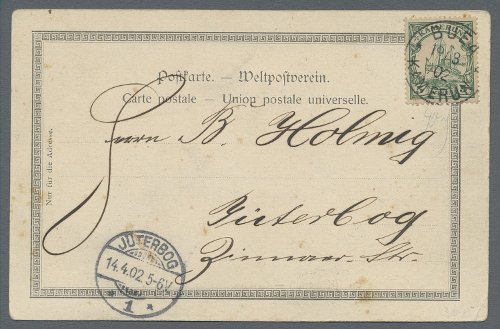 KAMERUN
BUEA
KAMERUN
Postkarte. — Weltpostverein.
Carte postale — Union postale universelle.
Nur für die Adresse.
Herrn B. Holmig
Jüterbog
Zinnaer-Str.
JÜTERBOG
14.4.02 5-6V
* 1 *